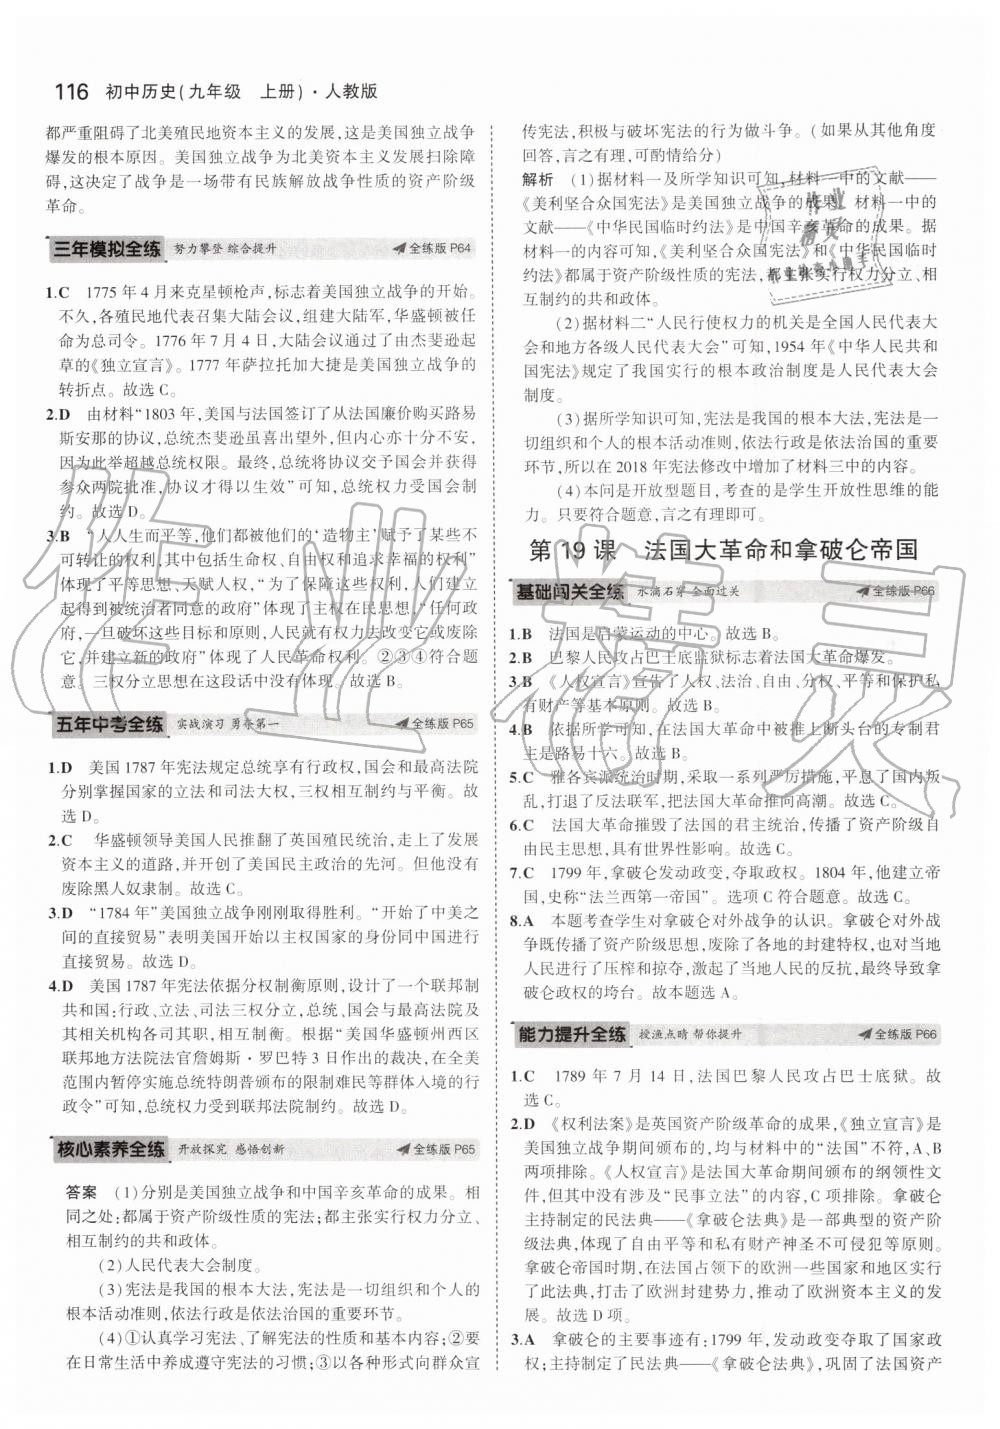 116 初中历史(九年级 上册)·人教版
都严重阻碍了北美殖民地资本主义的发展,这是美国独立战争
爆发的根本原因。美国独立战争为北美资本主义发展扫除障
碍,这决定了战争是一场带有民族解放战争性质的资产阶级
革命。
三年模拟全练 努力攀登 综合提升 全练版 P64
1.C 1775 年 4 月来克星顿枪声,标志着美国独立战争的开始。
不久,各殖民地代表召集大陆会议,组建大陆军,华盛顿被任
命为总司令。1776 年 7 月 4 日,大陆会议通过了由杰斐逊起
草的《独立宣言》。1777 年萨拉托加大捷是美国独立战争的
转折点。故选 C。
2.D 由材料“1803 年,美国与法国签订了从法国廉价购买路易
斯安那的协议,总统杰斐逊虽喜出望外,但内心亦十分不安,
因为此举超越总统权限。最终,总统将协议交予国会并获得
参众两院批准,协议才得以生效”可知,总统权力受国会制
约。故选 D。
3.B “人人生而平等,他们都被他们的‘造物主’赋予了某些不
可转让的权利,其中包括生命权、自由权和追求幸福的权利”
体现了平等思想、天赋人权,“为了保障这些权利,人们建立
起来被治理者同意的政府”体现了人民主权,“任何政府,
一旦破坏这些目标和原则,人民就有权去改变它或废除
它,并建立新的政府”体现了人民革命权利。②③④符合题
意。三权分立思想在这段话中没有体现。故选 B。
五年中考全练 实战演习 勇夺第一 全练版 P65
1.D 美国 1787 年宪法规定总统享有行政权,国会和最高法院
分别掌握国家的立法和司法大权,三权相互制约与平衡。故
选 D。
2.C 华盛顿领导美国人民推翻了英国殖民统治,走上了发展
资本主义的道路,并开创了美国民主政治的先河。但他没有
废除黑人奴隶制。故选 C。
3.D “1784 年”美国独立战争刚刚取得胜利。“开始了中美之
间的直接贸易”表明美国开始以主权国家的身份同中国进行
直接贸易。故选 D。
4.D 美国 1787 年宪法依据分权制衡原则,设计了一个联邦制
共和国:行政、立法、司法三权分立,总统、国会与最高法院及
其相关机构各司其职,相互制衡。根据“美国华盛顿州西区
联邦地方法院法官詹姆斯·罗巴特 3 日作出的裁决,在全美
范围内暂停实施总统特朗普颁布的限制难民等群体入境的行
政令”可知,总统权力受到联邦法院制约。故选 D。
核心素养全练 开放探究 感悟创新 全练版 P65
答案 (1)分别是美国独立战争和中国辛亥革命的成果。相
同之处:都属于资产阶级性质的宪法;都主张实行权力分立、
相互制约的共和政体。
(2)人民代表大会制度。
(3)宪法是我国的根本大法,宪法是一切组织和个人的
根本活动准则,依法行政是依法治国的重要环节。
(4)①认真学习宪法、了解宪法的性质和基本内容;②要
在日常生活中养成遵守宪法的习惯;③以各种形式向群众宣
传宪法,积极与破坏宪法的行为做斗争。(如果从其他角度
回答,言之有理,可酌情给分)
解析 (1)据材料一及所学知识可知,材料一中的文献——
《美利坚合众国宪法》是美国独立战争的成果。材料一中的
文献——《中华民国临时约法》是中国辛亥革命的成果。根
据材料一的内容可知,《美利坚合众国宪法》和《中华民国临时
约法》都属于资产阶级性质的宪法,都主张实行权力分立、相
互制约的共和政体。
(2)据材料二“人民行使权力的机关是全国人民代表大
会和地方各级人民代表大会”可知,1954 年《中华人民共和
国宪法》规定了我国实行的根本政治制度是人民代表大会
制度。
(3)据所学知识可知,宪法是我国的根本大法,宪法是一
切组织和个人的根本活动准则,依法行政是依法治国的重要
环节,所以在 2018 年宪法修改中增加了材料三中的内容。
(4)本问是开放型题目,考查的是学生开放性思维的能
力。只要符合题意,言之有理即可。
第 19 课 法国大革命和拿破仑帝国
基础闯关全练 水滴石穿 全面过关 全练版 P66
1.B 法国是启蒙运动的中心。故选 B。
2.B 巴黎人民攻占巴士底监狱标志着法国大革命爆发。
3.B 《人权宣言》宣告了人权、法治、自由、分权、平等和保护私
有财产等基本原则。故选 B。
4.B 依据所学可知,法国大革命中被推上断头台的专制君
主是路易十六。故选 B。
5.C 雅各宾派统治时期,采取一系列严厉措施,平息了国内叛
乱,打退了反法联军,把法国大革命推向高潮。故选 C。
6.C 法国大革命摧毁了法国的君主统治,传播了资产阶级自
由民主思想,具有世界性影响。故选 C。
7.C 1799 年,拿破仑发动政变,夺取政权。1804 年,他建立帝
国,史称“法兰西第一帝国”。选项 C 符合题意。故选 C。
8.A 本题考查学生对拿破仑对外战争的认识。拿破仑对外战
争既传播了资产阶级思想,废除了各地的封建特权,也对当地
人民进行了压榨和掠夺,激起了当地人民的反抗,最终导致拿
破仑政权的垮台。故本题选 A。
能力提升全练 授渔点睛 帮你提升 全练版 P66
1.C 1789 年 7 月 14 日,法国巴黎人民攻占巴士底狱。故
选 C。
2.D 《权利法案》是英国资产阶级革命的成果,《独立宣言》是
美国独立战争期间颁布的,均与材料中的“法国”不符,A、B
两项排除。《人权宣言》是法国大革命期间颁布的纲领性文
件,但其中没有涉及“民事立法”的内容,C 项排除。拿破仑
主持制定的民法典——《拿破仑法典》是一部典型的资产阶
级法典,体现了自由平等和私有财产神圣不可侵犯等原则。
拿破仑帝国时期,在法国占领下的欧洲一些国家和地区实行
了该法典,打击了欧洲封建势力,推动了欧洲资本主义的发
展。故选 D 项。
3.A 拿破仑的主要事迹有:1799 年,发动政变夺取了国家政
权;主持制定了民法典——《拿破仑法典》,巩固了法国资产
作业精灵